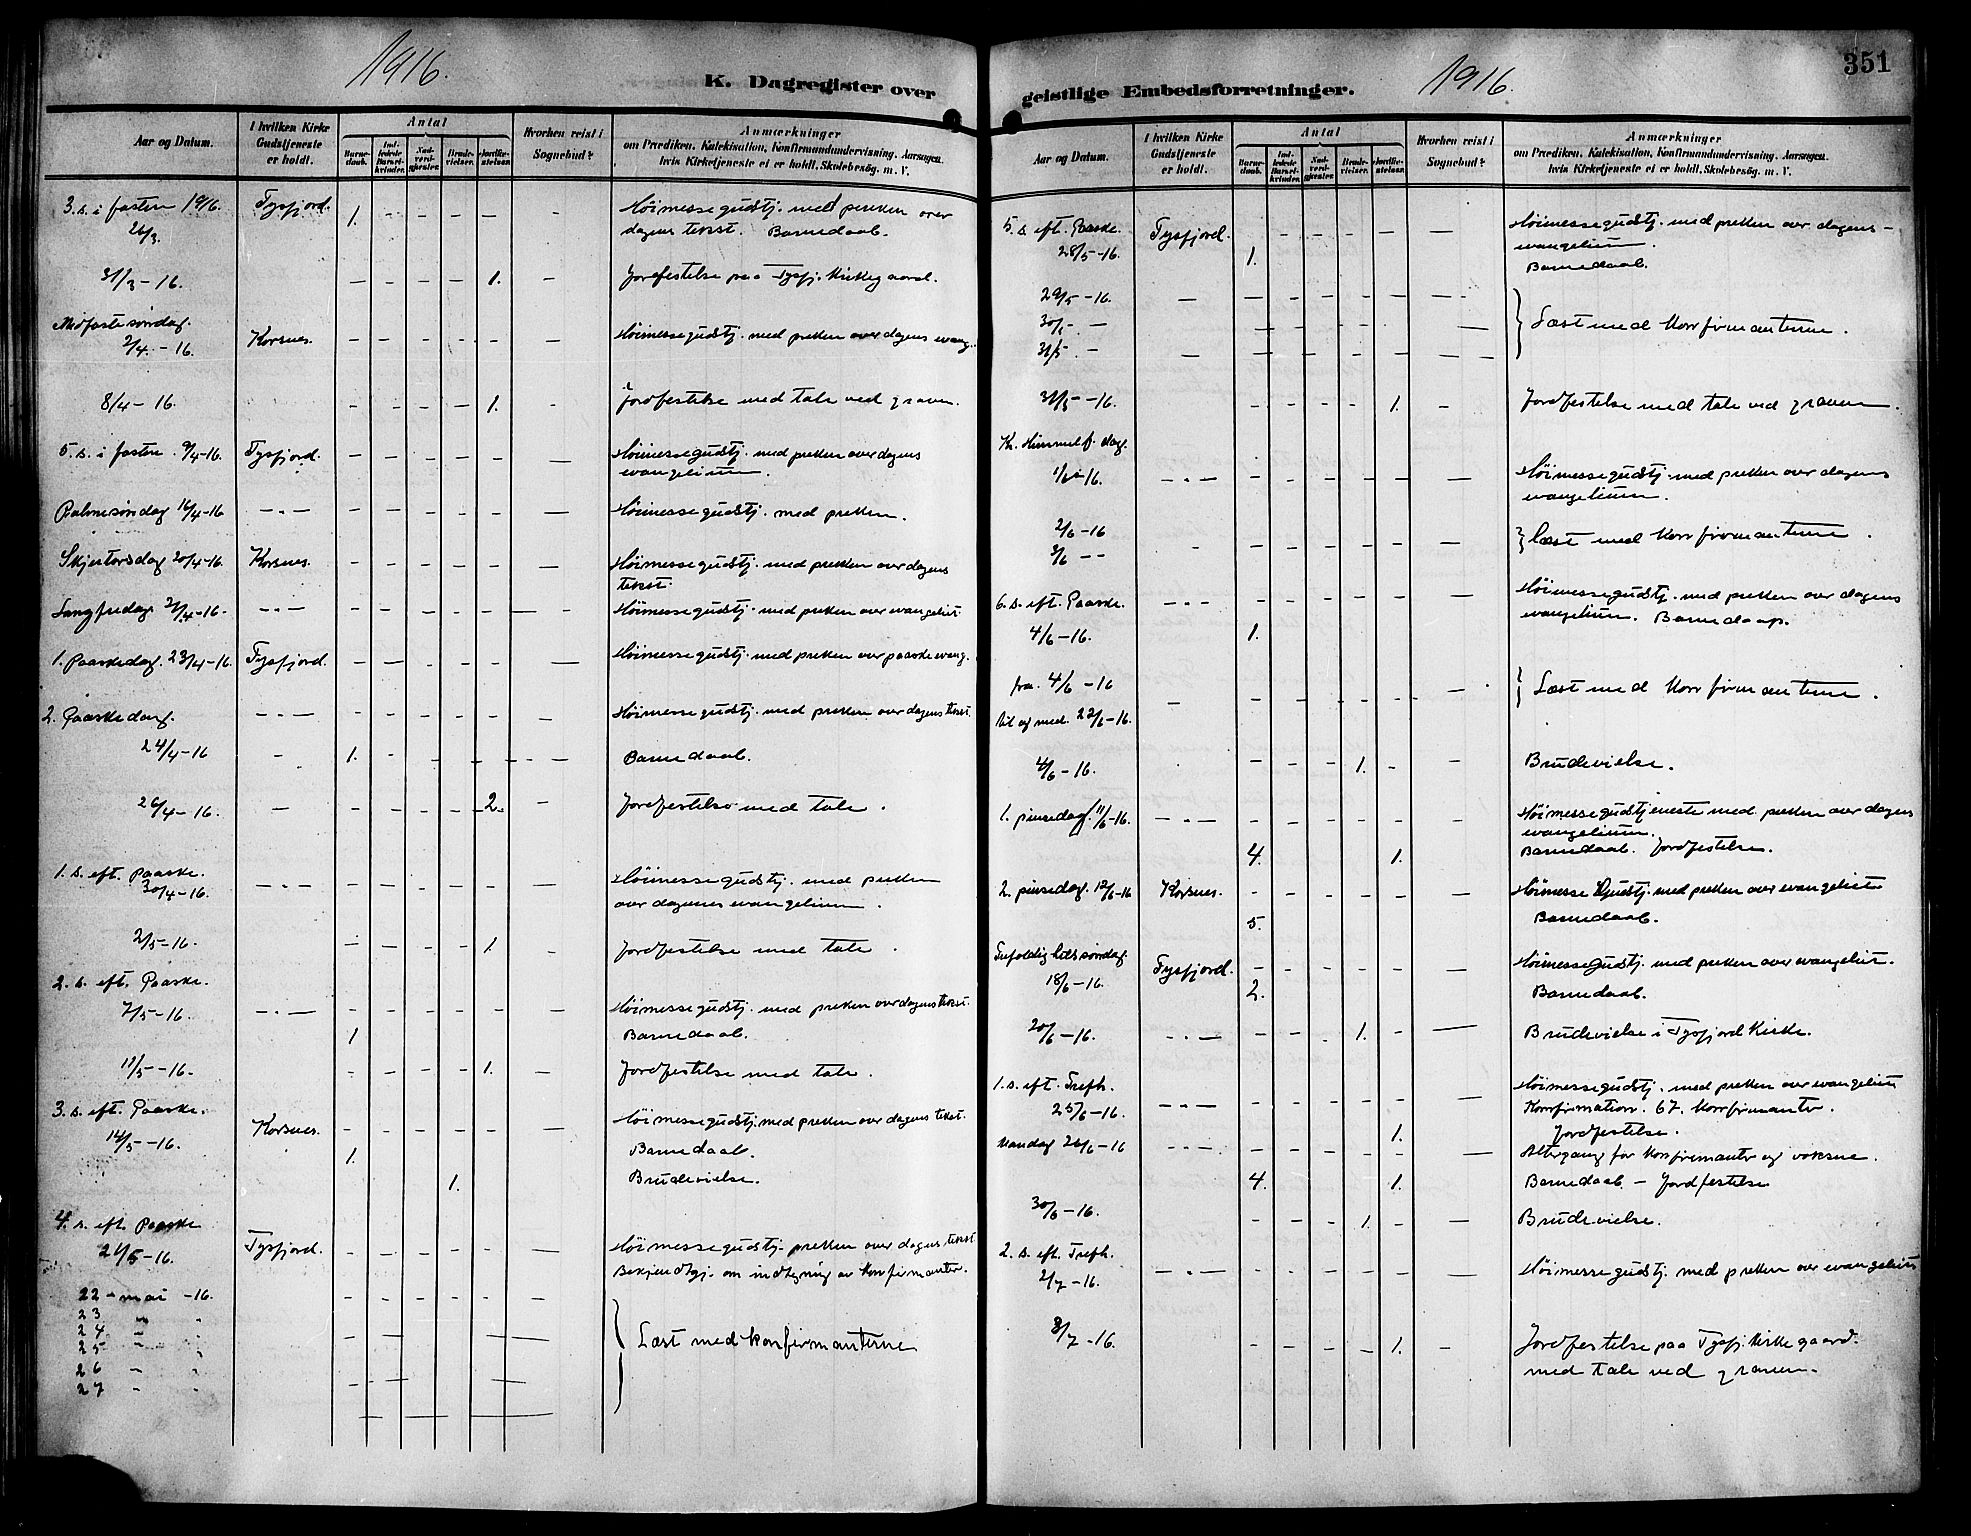 1916.
K. Dagregister over
Aar og Datum.
I hvilken Kirke Gudstjeneste er holdt.
Antal
Barnedaab.
Indledede Barselkvinder.
Nadverdgjester.
Brudevielser.
Jordfæstelser.
Hvorhen reist i Sognebud?
Anmærkninger
om Prædiken, Katekisation, Konfirmandundervisning, Aarsagen, hvis Kirketjeneste ei er holdt, Skolebesøg. m. V.
3. s. i fasten 1916. Tysfjord. 1. – – – – – Höimessegudstj. med preken over
26/3. dagens tekst. Barnedaab.
31/3 – 16. – – – – 1. – Jordfestelse paa Tysfj. kirkegaard.
Midfastesöndag.
2/4 – 16. Korsnes. – – – – – – Höimessegudstj. med preken over dagens evang.
8/4 – 16. – – – – 1. – Jordfestelse med tale ved graven.
5. s. i fasten. 9/4–16. Tysfjord. – – – – – – Höimessegudstj. med preken over dagens
evangelium.
Palmesöndag 16/4–16 – " – – – – – – – Höimessegudstj. med preken.
Skjertorsdag 20/4–16. Korsnes. – – – – – – Höimessegudstj. med preken over dagens
tekst.
Langfredag 21/4–16. – " – – – – – – – Höimessegudstj. med preken over evangeliet.
1. Paaskedag. 23/4–16. Tysfjord. – – – – – – Höimessegudstj. med preken over paaskeevang.
2. Paaskedag. – " – – – – – – – Höimessegudstj. med preken over dagens tekst.
24/4–16 – 1. – – – – – Barnedaab.
26/4–16. – – – – – 2. – Jordfestelse med tale.
1. s. eft. paaske.
30/4–16. – " – – – – – – – Höimessegudstj. med preken
over dagens evangelium.
2/5–16. – – – – 1. Jordfestelse med tale.
2. s. eft. Paaske.
7/5–16. – " – – – – – – – Höimessegudstj. med preken over dagens tekst.
1 Barnedaab.
11/5–16. – – – – 1. – Jordfestelse med tale.
3. s. eft. Paaske.
14/5–16. Korsnes. – – – – – – Höimessegudstj. med preken over dagens tekst.
1. Barnedaab.
1. Brudevielse.
4. s. eft. Paaske
21/5–16. Tysfjord. – – – – – – Höimessegudstj. preken over dagens tekst
Bekjendtgj. om indtegning av konfirmanter.
22 – mai –16.
23 " "
24 " "
25 " " } Læst med konfirmanterne
26 " "
27 " "
geistlige Embedsforretninger.
1916.
351
Aar og Datum.
I hvilken Kirke Gudstjeneste er holdt.
Antal
Barnedaab.
Indledede Barselkvinder.
Nadverdgjester.
Brudevielser.
Jordfæstelser.
Hvorhen reist i Sognebud?
Anmærkninger
om Prædiken, Katekisation, Konfirmandundervisning, Aarsagen, hvis Kirketjeneste ei er holdt, Skolebesøg. m. V.
5. s. eft. Paaske. Tysfjord. – – – – – – Höimessegudstj. med preken over dagens –
28/5–16. 1. evangelium.
Barnedaab.
29/5 –16. – – – – – – –
30/5 – – – – – – – } Læst med konfirmanterne.
31/5 – – – – – – – –
31/5 –16. – – – – 1. – Jordfestelse med tale ved graven.
Kr. Himmelf. dag.
1/6–16. – " – – – – – – – Höimessegudstj. med preken over dagens
evangelium.
2/6 –16
3/6 – – – – – – – – – } læst med konfirmanterne.
6. s. eft. Paaske. – " – – – – – – – Höimessegudstj. med preken over dagens
4/6 –16. 1. evangelium. Barnedaap.
fra 4/6 –16
til og med. 22/6–16. – – – – – – – } Læst med konfirmanterne.
4/6 –16. – – – 1. – – Brudevielse.
1. pinsedag. 11/6–16. – " – – – – – – – Höimessegudstjeneste med preken over dagens
evangelium.
4. 1. Barnedaab. Jordfestelse.
2. pinsedag. 12/6–16 Korsnes. – – – – – – Höimesse Gudstj. med preken over evangeliet
5. Barnedaab.
Trefoldighetssöndag. Tysfjord. – – – – – – Höimessegudstj. med preken over evangeliet.
18/6 –16. 2. Barnedaab.
20/6 –16. – " – – – – 1. – – Brudevielse i Tysfjord Kirke.
1. s. eft. Trefh. Höimessegudstj. med preken over evangeliet
25/6–16. – " – – – – – – – Konfirmation. 67. konfirmanter.
1. Jordfestelse.
Mandag 26/6–16 – " – – – – – – – Altergang for konfirmanter og voksne.
4. 1. Barnedaab – Jordfestelse
30/6 –16. – – – 1. – – Brudevielse.
2. s. eft. Trefh.
2/7 –16. – " – – – – – – – Höimessegudstj. med preken over evangeliet
8/7 –16. – – – – 1. – Jordfestelse paa Tysfj. Kirkegaard.
med tale ved graven.